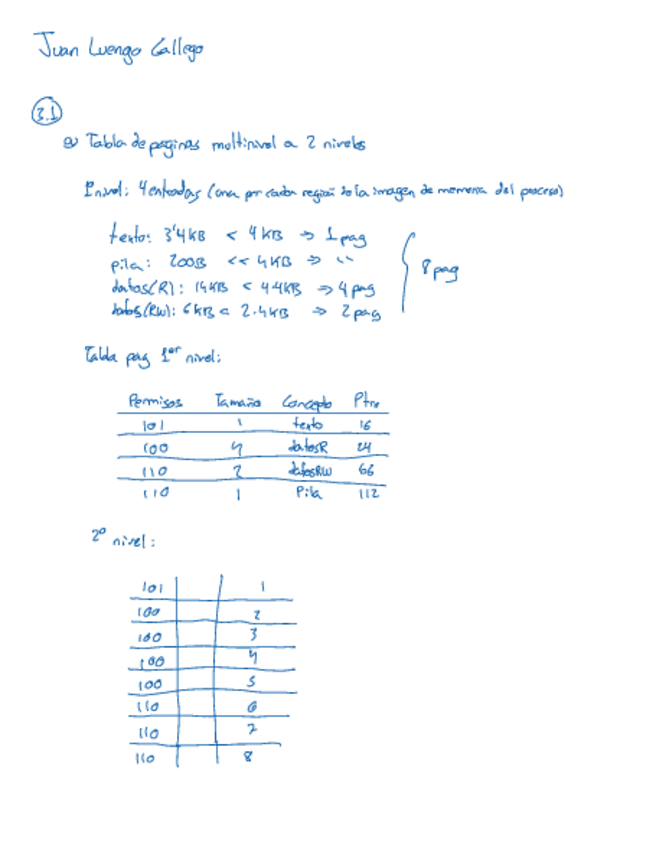 Juan Luengo Gallego
3.1
a) Tabla de paginas multinivel a 2 niveles
1º nivel: 4 entradas (una por cada región de la imagen de memoria del proceso)
texto: 3'4KB < 4KB => 1 pag
pila: 200B << 4KB => " "
datos(R): 14KB < 4·4KB => 4 pag
datos(RW): 6KB < 2·4KB => 2 pag
8 pag
Tabla pag 1er nivel:
Permisos Tamaño Concepto Ptro
101 1 texto 16
100 4 datosR 24
110 2 datosRW 66
110 1 Pila 112
2º nivel:
101 1
100 2
100 3
100 4
100 5
110 6
110 7
110 8